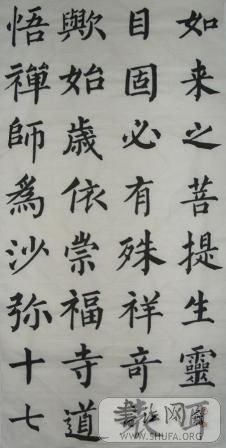 如来之菩提生靈
目固必有殊祥奇
歟始歲依崇福寺道
悟禪師爲沙弥十七
WWW.SHUFA.ORG